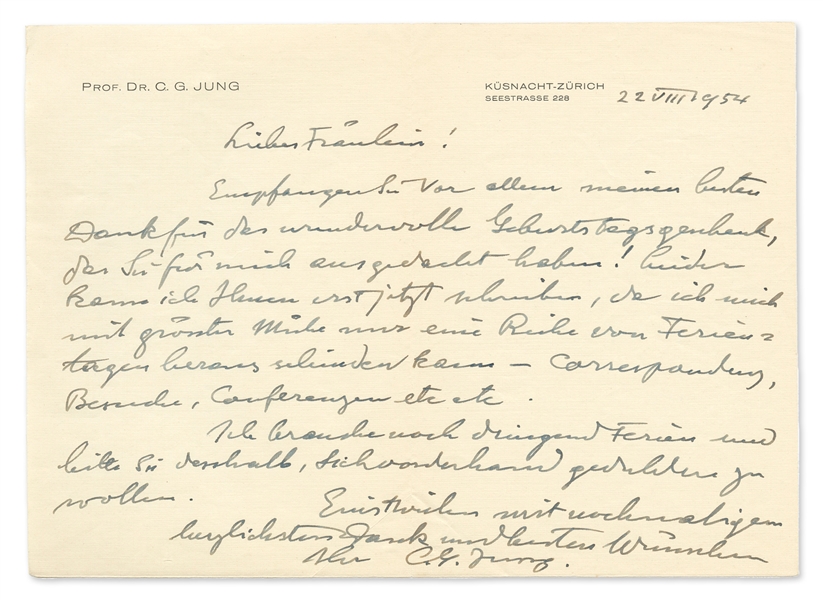 PROF. DR. C. G. JUNG
KÜSNACHT-ZÜRICH
SEESTRASSE 228
22 VIII 1954
Liebes Fräulein!
Empfangen Sie vor allem meinen besten
Dank für das wundervolle Geburtstagsgeschenk,
das Sie für mich ausgedacht haben! Leider
kann ich Ihnen erst jetzt schreiben, da ich mich
mit grösster Mühe nur eine Reihe von Ferien=
tagen heraus schinden kann – Correspondenz,
Besuche, Conferenzen etc etc.
Ich brauche noch dringend Ferien und
bitte Sie desshalb, sich vorderhand gedulden zu
wollen.
Einstweilen mit nochmaligem
herzlichsten Dank und besten Wünschen
Ihr C. G. Jung.